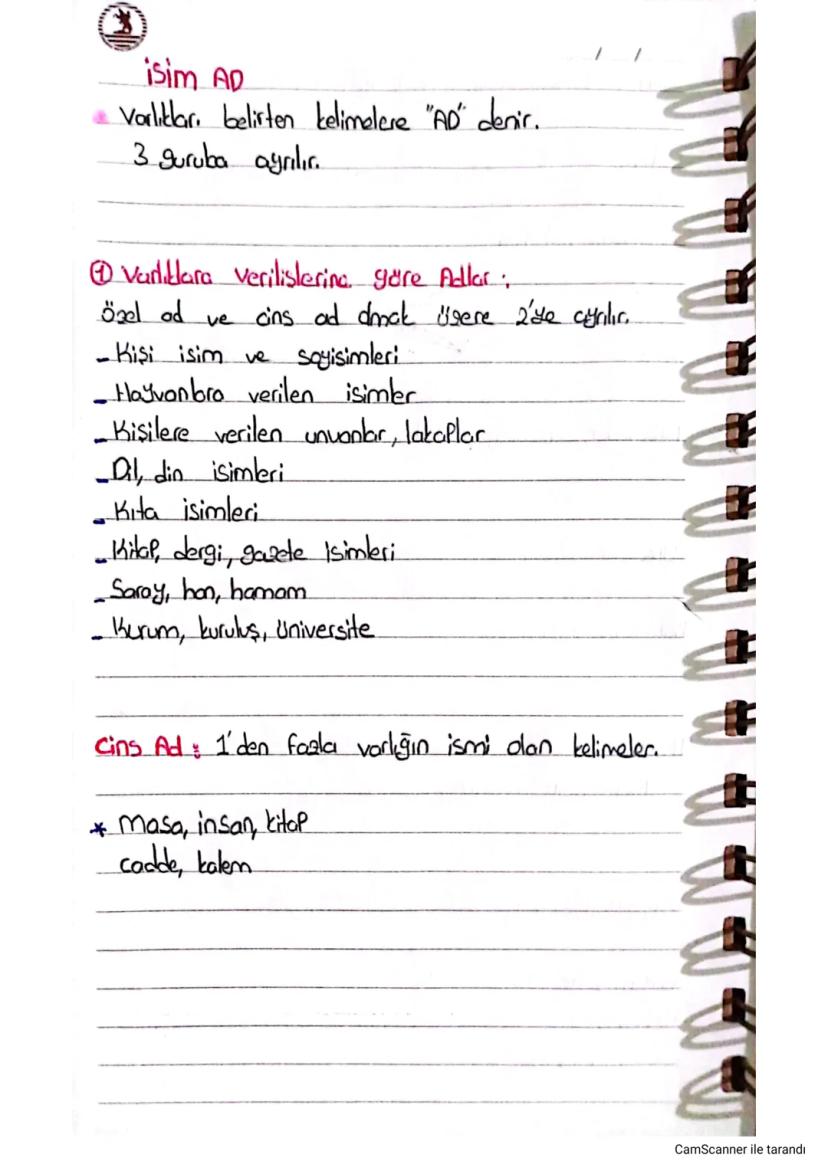 İsim AD
Varlıkları belirten kelimelere "AD" denir.
3 guruba ayrılır.
① Varlıklara Verilişlerine göre Adlar :
Özel ad ve cins ad olmak üzere 2'ye ayrılır.
- Kişi isim ve soyisimleri
- Hayvanlara verilen isimler
- Kişilere verilen unvanlar, lakaplar
- Dil, din isimleri
- Kıta isimleri
- Kitap, dergi, gazete isimleri
- Saray, han, hamam
- Kurum, kuruluş, üniversite
Cins Ad : 1'den fazla varlığın ismi olan kelimeler.
* Masa, insan, kitap
cadde, kalem
CamScanner ile tarandı